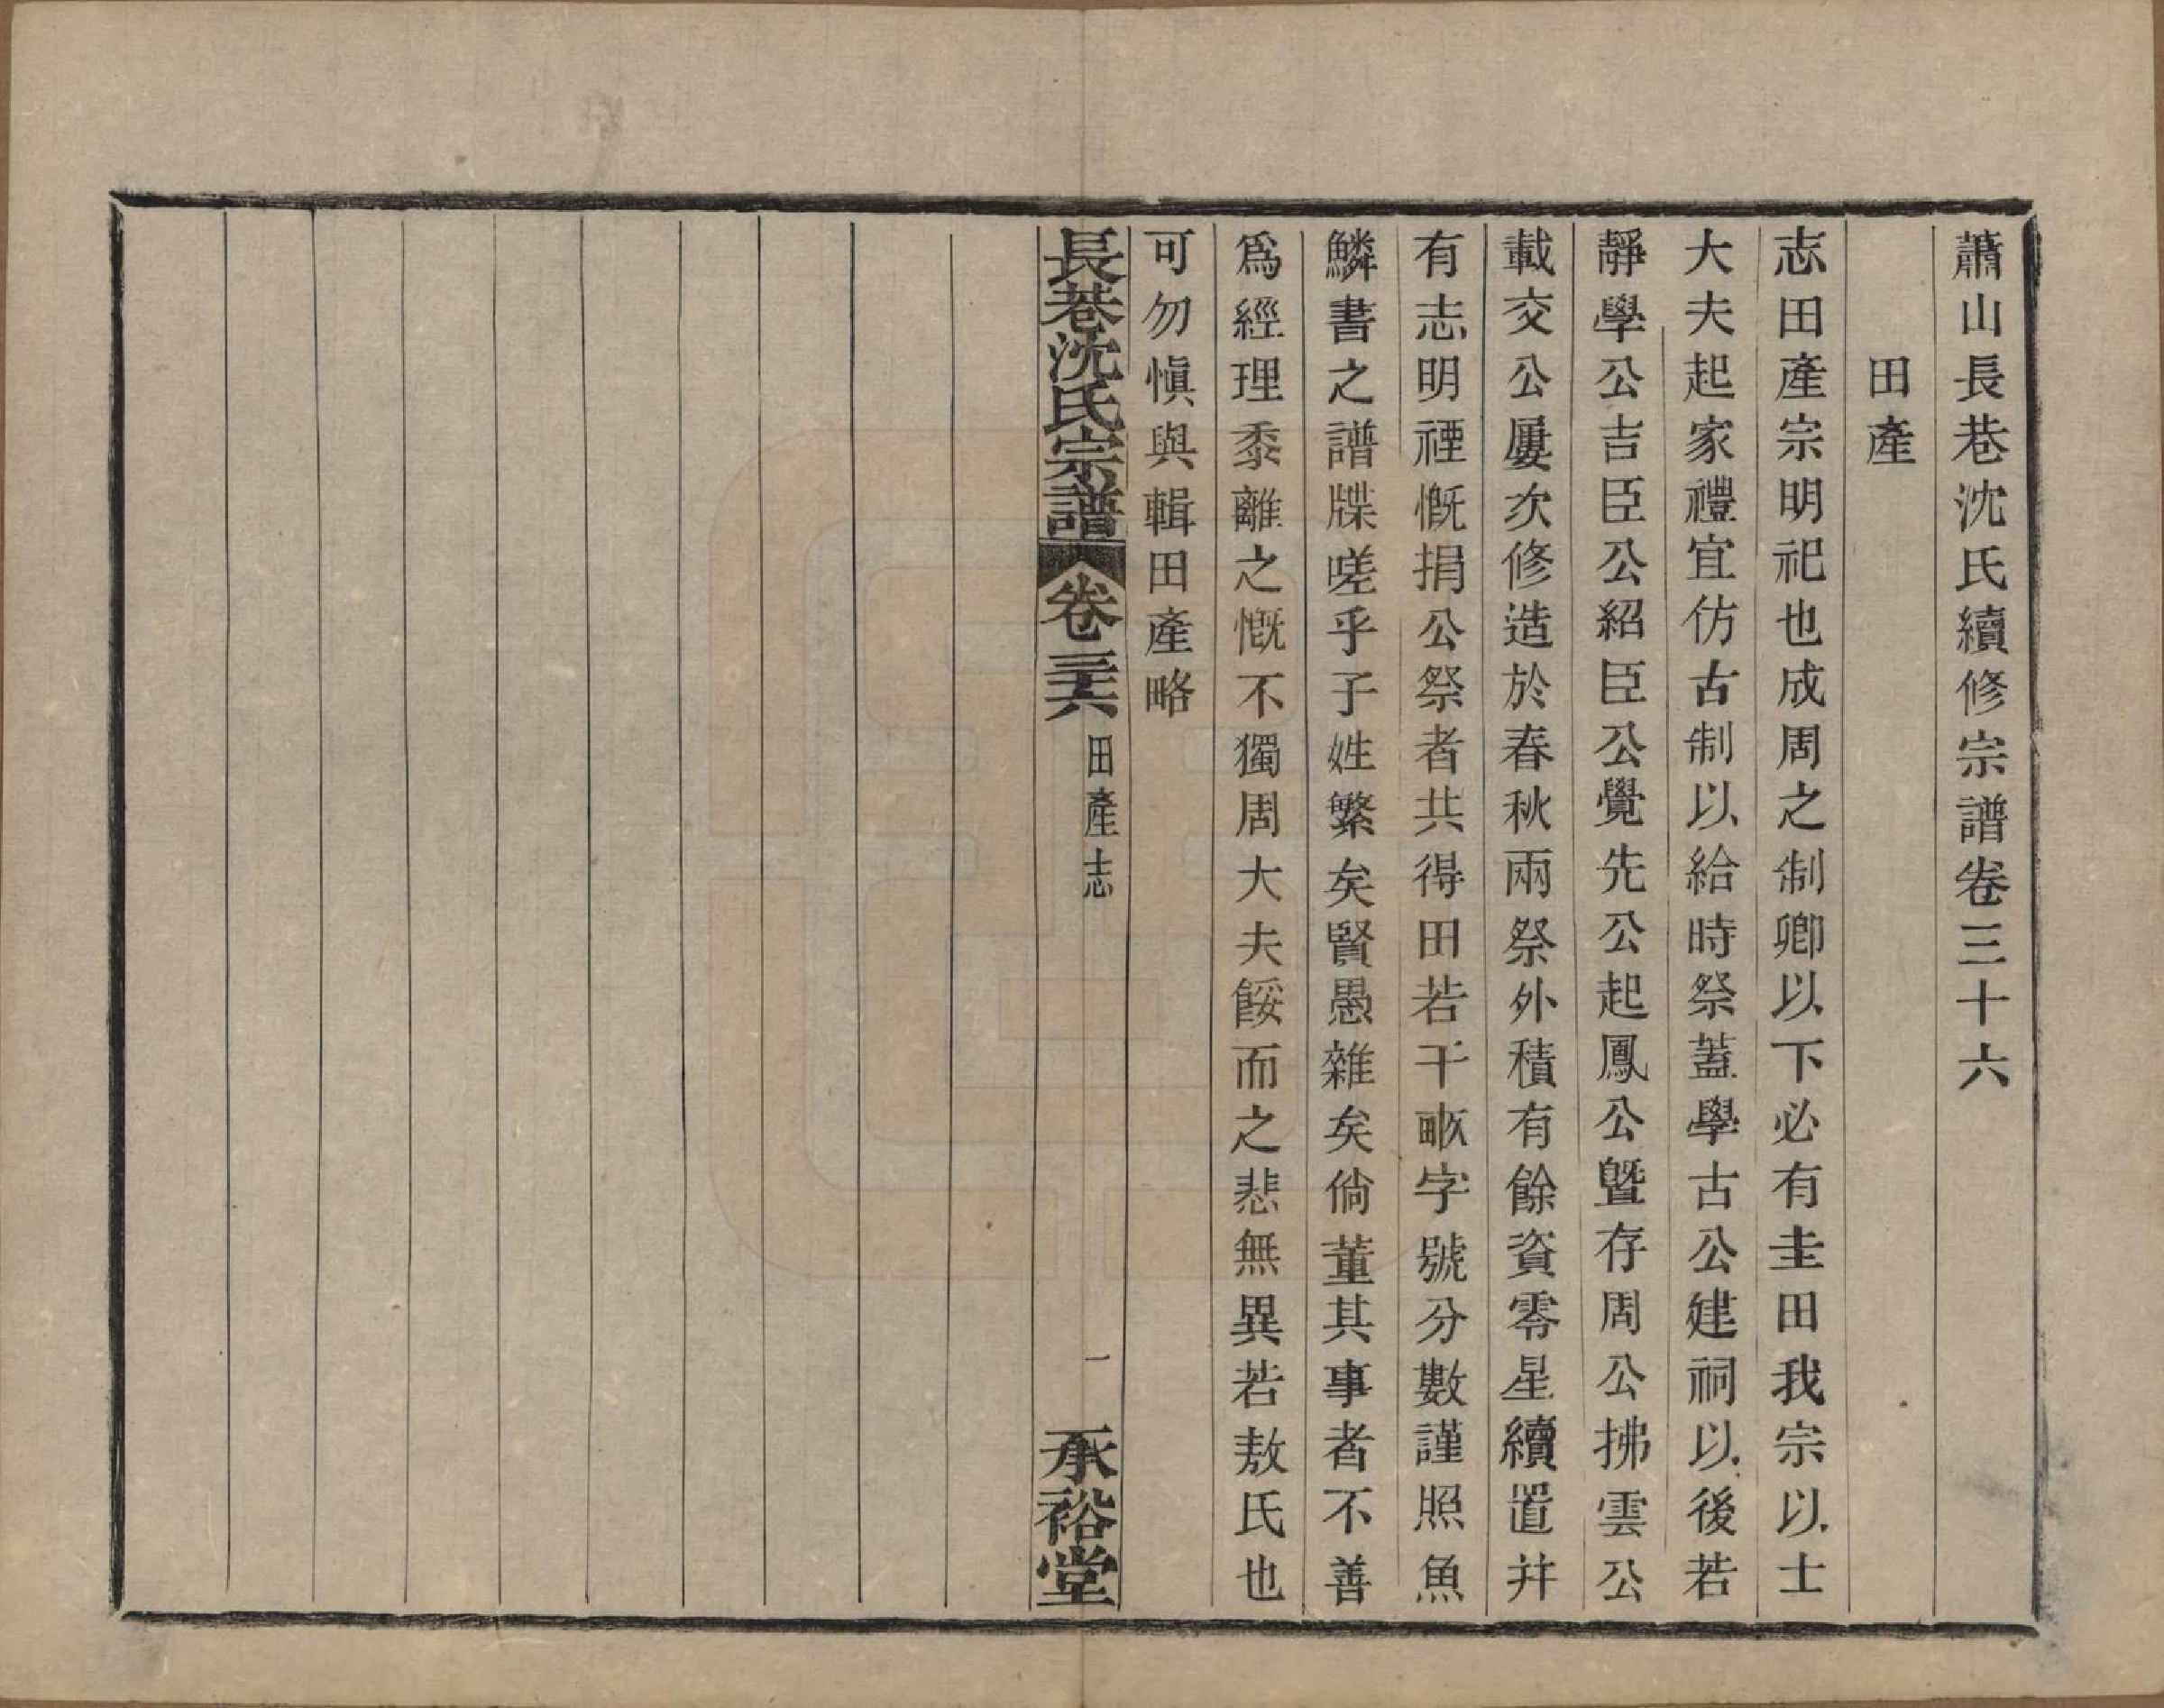 蕭山長巷沈氏續修宗譜卷三十六
田產
志田產宗明祀也成周之制卿以下必有圭田我宗以士
大夫起家禮宜仿古制以給時祭蓋學古公建祠以後若
靜學公吉臣公紹臣公覺先公起鳳公暨存周公拂雲公
載交公屢次修造於春秋兩祭外積有餘資零星續置并
有志明禋慨捐公祭者共得田若干畝字號分數謹照魚
鱗書之譜牒嗟乎子姓繁矣賢愚雜矣倘董其事者不善
爲經理黍離之慨不獨周大夫餒而之悲無異若敖氏也
可勿愼與輯田產略
長巷沈氏宗譜 卷三十六 田產志 一 承裕堂